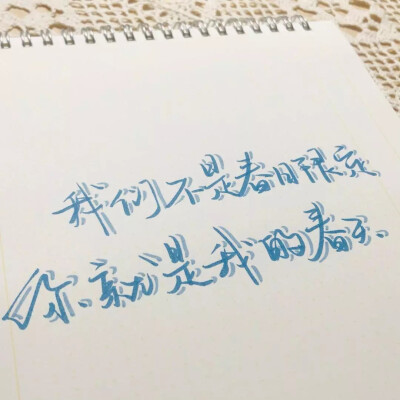 我们不是春日限定
你就是我的春天